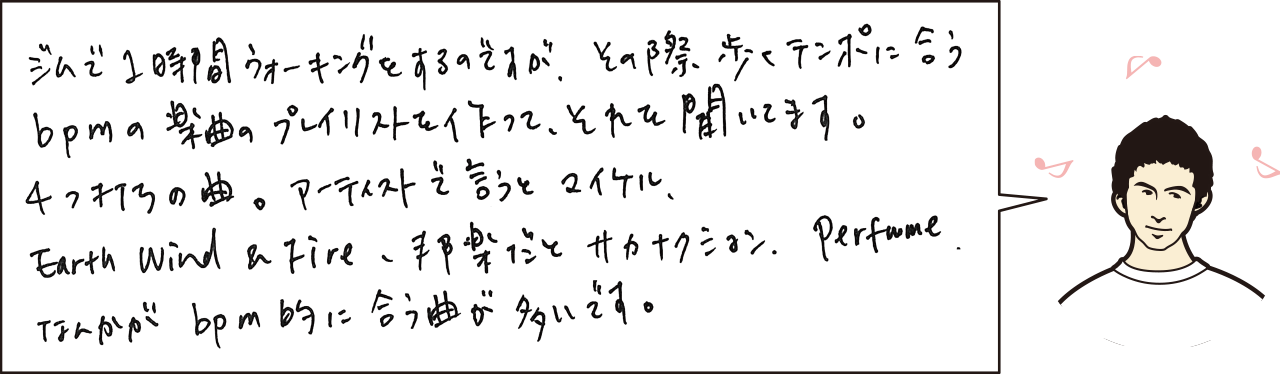 ジムで1時間ウォーキングをするのですが、その際、歩くテンポに合う
bpmの楽曲のプレイリストを作って、それを聞いてます。
4つ打ちの曲。アーティストで言うとマイケル、
Earth Wind & Fire、邦楽だとサカナクション、Perfume、
なんかが bpm的に合う曲が多いです。